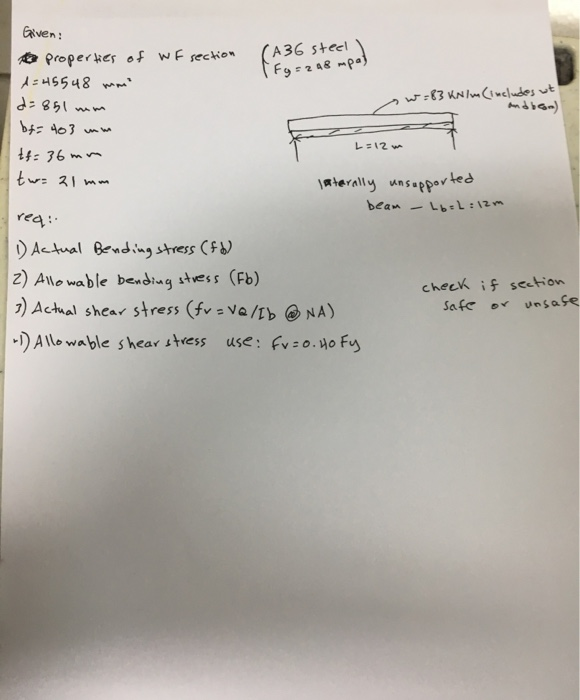 Given:
properties of WF section (A36 steel
Fy = 248 mpa)
A = 45548 mm²
d = 851 mm
bf = 403 mm
tf = 36 mm
tw = 21 mm
w = 83 KN/m (includes wt
and beam)
L = 12 m
laterally unsupported
beam - Lb = L = 12m
req:.
1) Actual Bending stress (fb)
2) Allowable bending stress (Fb)
3) Actual shear stress (fv = VQ/Ib @ NA)
4) Allowable shear stress use: Fv = 0.40 Fy
check if section
safe or unsafe